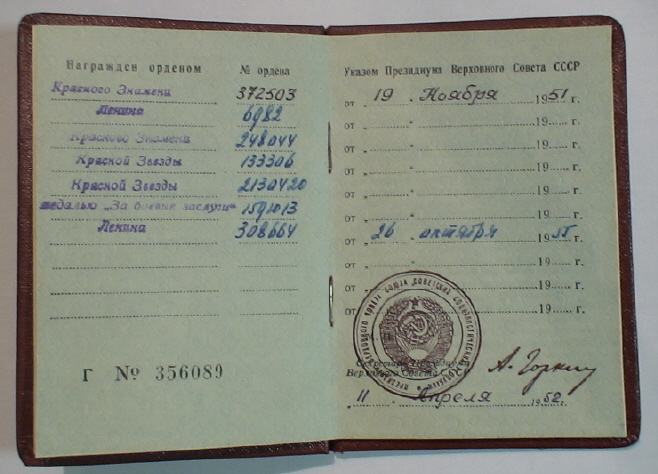 Награжден орденом
№ ордена
Красного Знамени 372503
Ленина 6982
Красного Знамени 248044
Красной Звезды 133306
Красной Звезды 2130420
медалью „За боевые заслуги“
Ленина 308664
Г № 356089
Указом Президиума Верховного Совета СССР
от „ 19 „ Ноября 1951 г.
от „ „ 19 г.
от „ „ 19 г.
от „ „ 19 г.
от „ „ 19 г.
от „ „ 19 г.
от „ 26 „ октября 19 г.
от „ „ 19 г.
от „ „ 19 г.
от „ „ 19 г.
Секретарь Президиума
Верховного Совета
А. Горкин
„ 11 „ Апреля 1952 г.